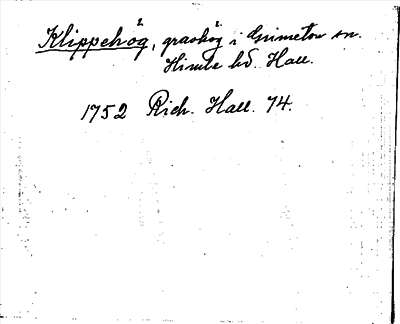 Klippehög, gravhög i Grimeton sn.
Himle hd. Hall.
1752 Rich. Hall. 74.